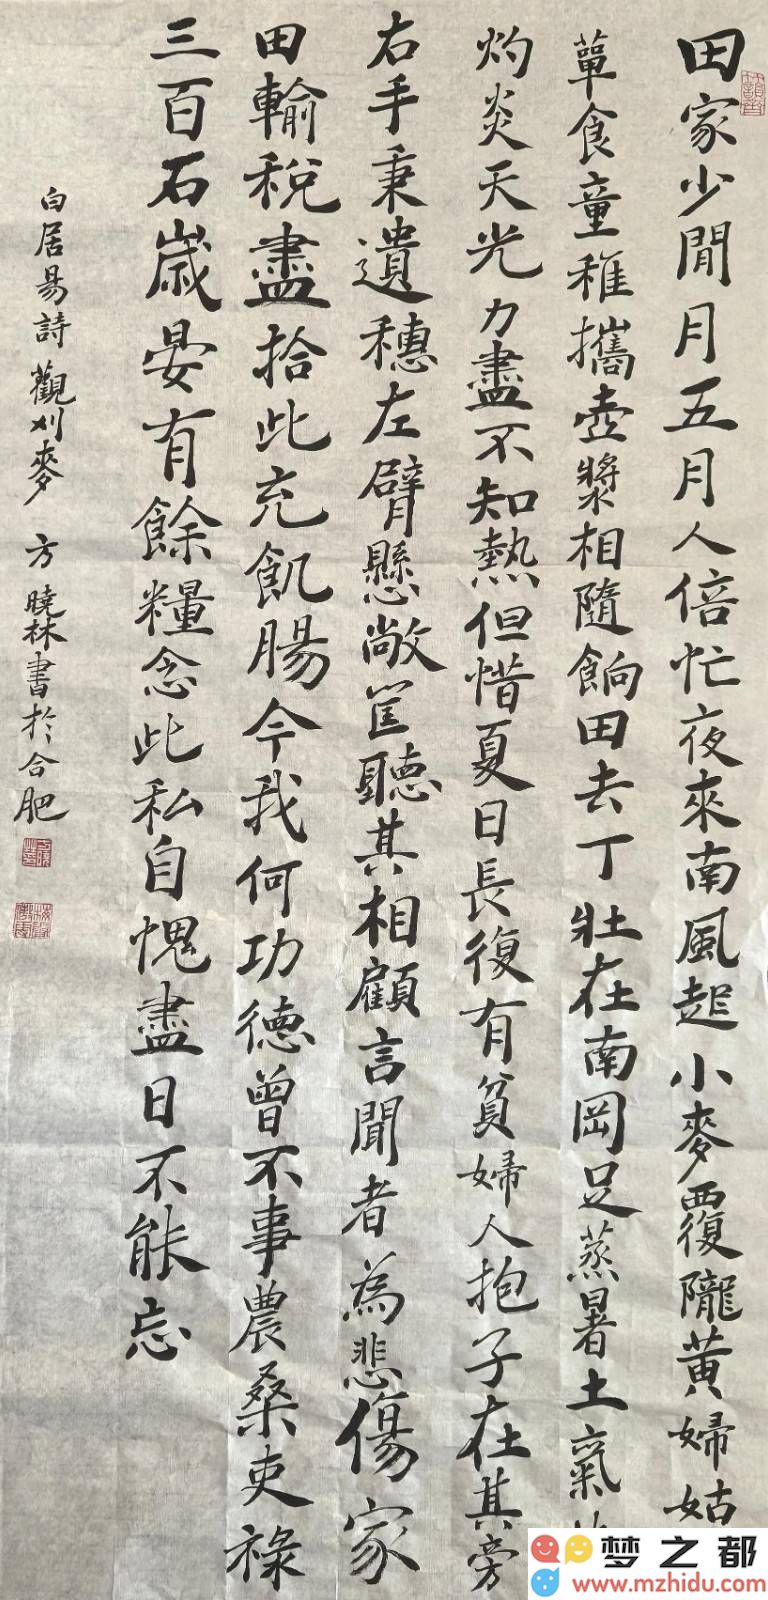 田家少閒月五月人倍忙夜來南風起小麥覆隴黃婦姑
簞食童稚攜壺漿相隨餉田去丁壯在南岡足蒸暑土氣
灼炎天光力盡不知熱但惜夏日長復有貧婦人抱子在其旁
右手秉遺穗左臂懸敞筐聽其相顧言聞者為悲傷家
田輸稅盡拾此充飢腸今我何功德曾不事農桑吏祿
三百石歲晏有餘糧念此私自愧盡日不能忘
白居易詩觀刈麥 方曉林書於合肥
梦之都
www.mzhidu.com